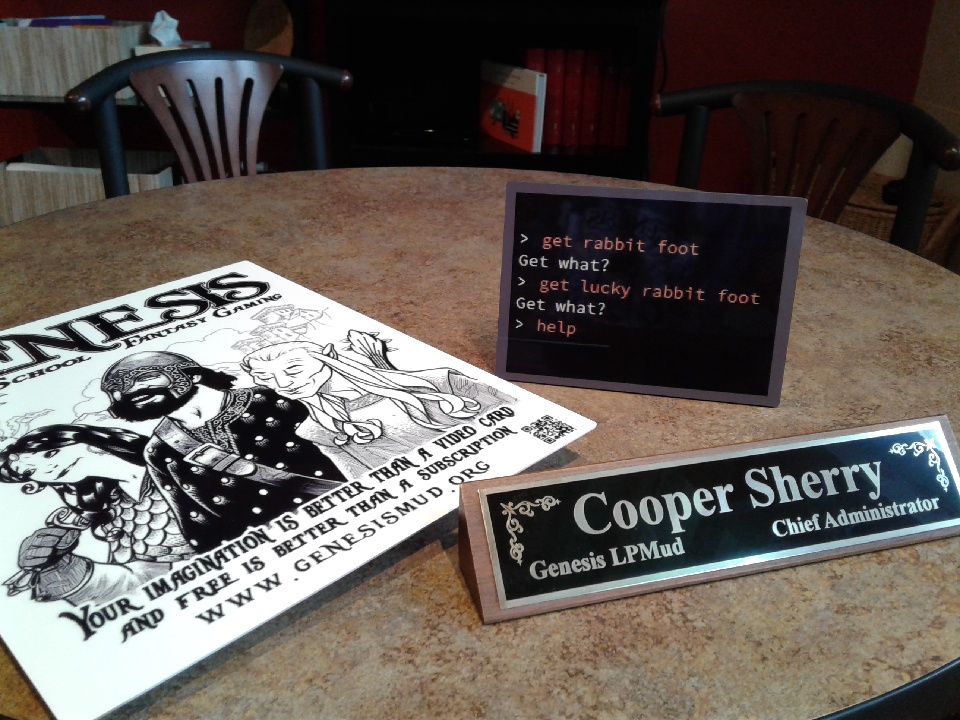 ENESIS
School Fantasy Gaming
Your imagination is better than a video card
and free is better than a subscription
www.genesismud.org
> get rabbit foot
Get what?
> get lucky rabbit foot
Get what?
> help
Cooper Sherry
Chief Administrator
Genesis LPMud